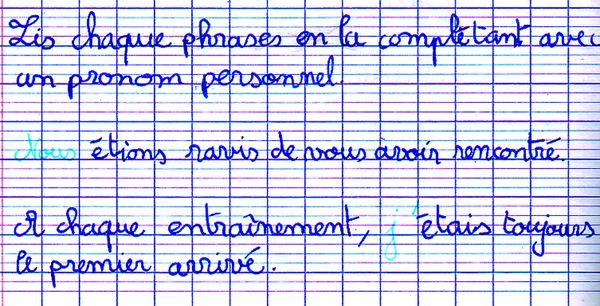 Lis chaque phrases en la complétant avec
un pronom personnel.
Nous étions ravis de vous avoir rencontré.
A chaque entraînement, j'étais toujours
le premier arrivé.